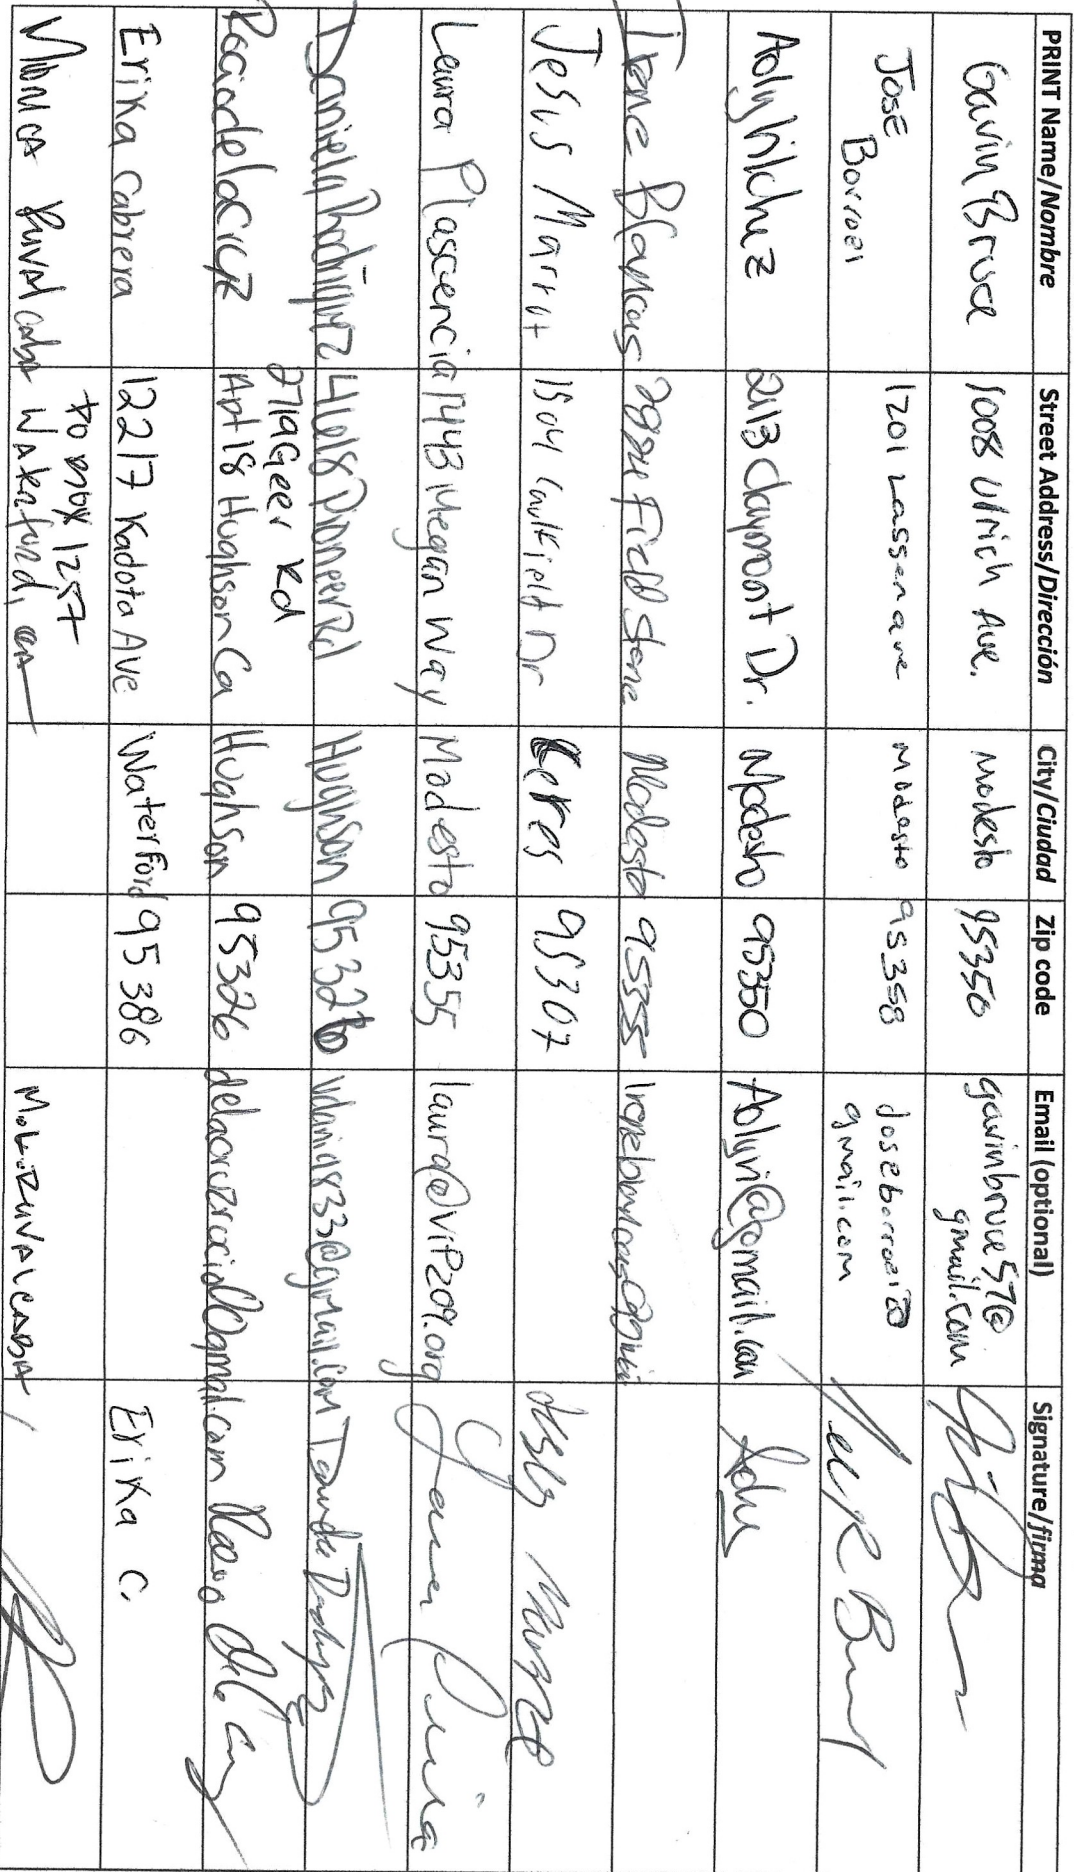 PRINT Name/Nombre Street Address/Dirección City/Ciudad Zip code Email (optional) Signature/firma
Gavin Bruce 1008 Ulrich Ave. modesto 95350 gavinbruce57@
gmail.com
JOSE
Borroel 1201 Lassen ave Modesto 95358 joseborroel20
gmail.com
Aolyhilchuz 2113 Claymont Dr. Modesto 95350 Aolyvi@gmail.com
Irene Blancas Field Stone Modesto 95355
Jesus 1504 Caulkield Dr Ceres 95307
Laura Plascencia 1443 Megan Way Modesto 95355 laura@VIP209.org
Daniela Rodriguez 4618 Pioneer Rd Hughson 95326 vdania833@gmail.com
Rociodelacruz 2719 Geer Rd
Apt 18 Hughson Ca Hughson 95326 delacruzrocio10@gmail.com Rocio
Erika Cabrera 12217 Kadota Ave Waterford 95386 Erika C.
Monica Ruvalcaba 1257
Waterford, CA M.L.RUVALCABA